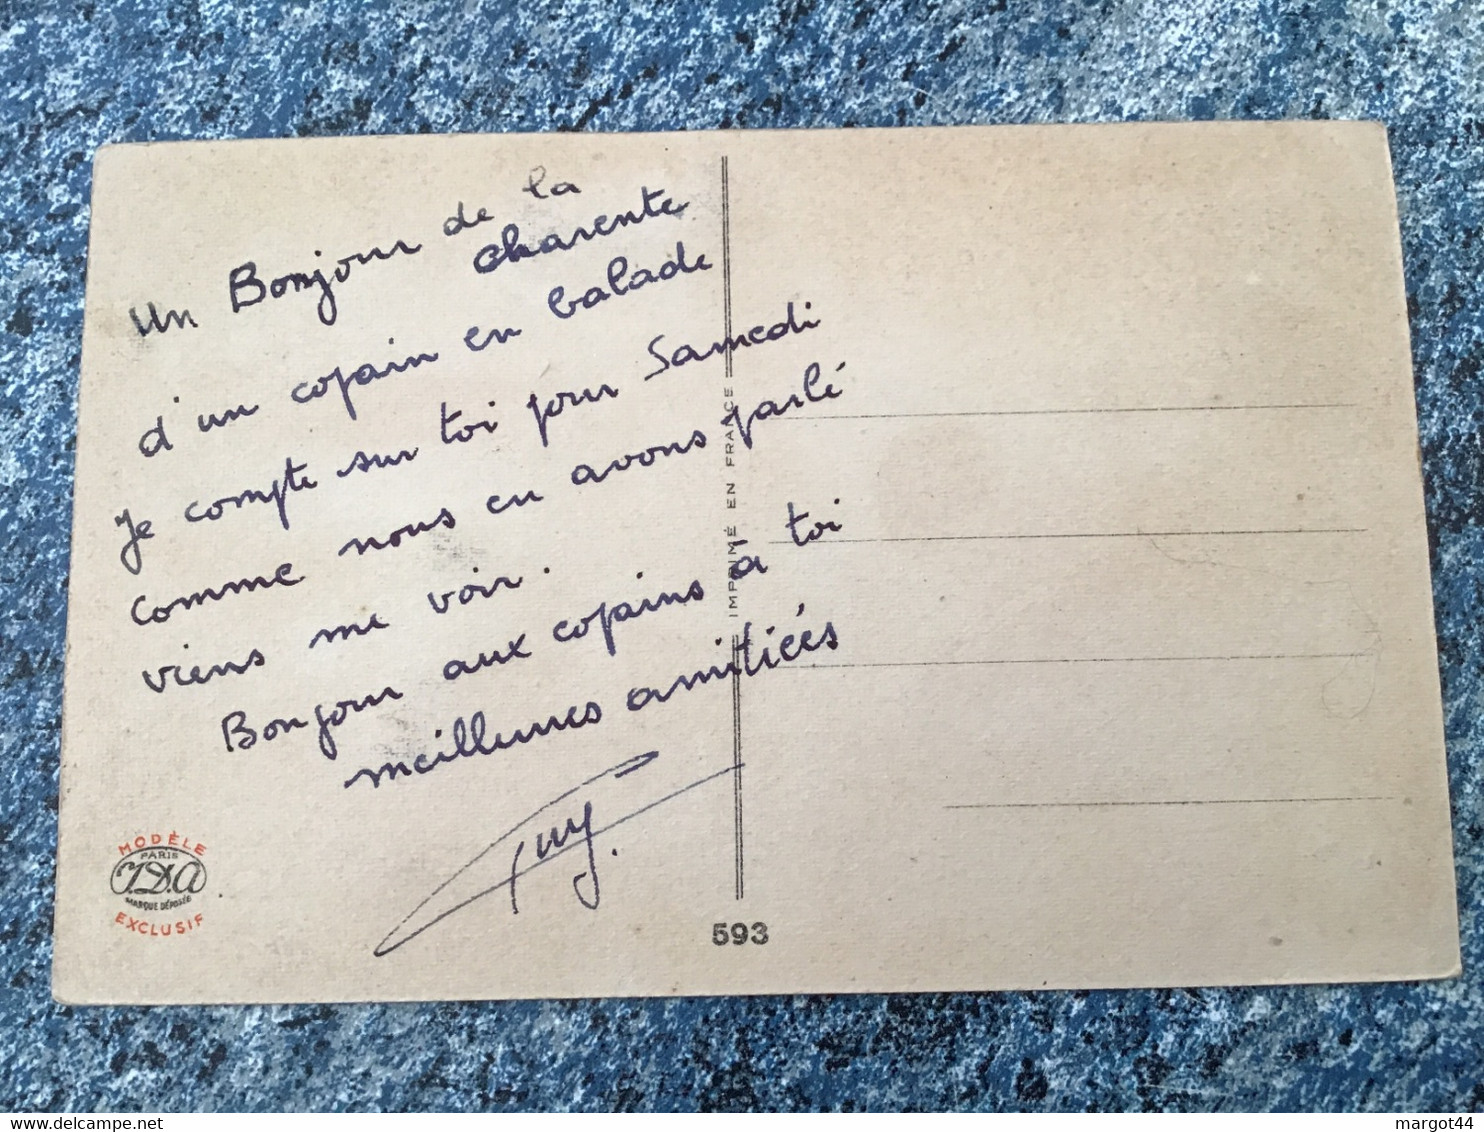 Un Bonjour de la
charente
d'un copain en balade
Je compte sur toi pour Samedi
comme nous en avons parlé
viens me voir.
Bonjour aux copains à toi
meilleures amitiées
Guy.
IMPRIMÉ EN FRANCE
MODÈLE
PARIS
J.D.A
MARQUE DÉPOSÉE
EXCLUSIF
593
delcampe.net
margot44